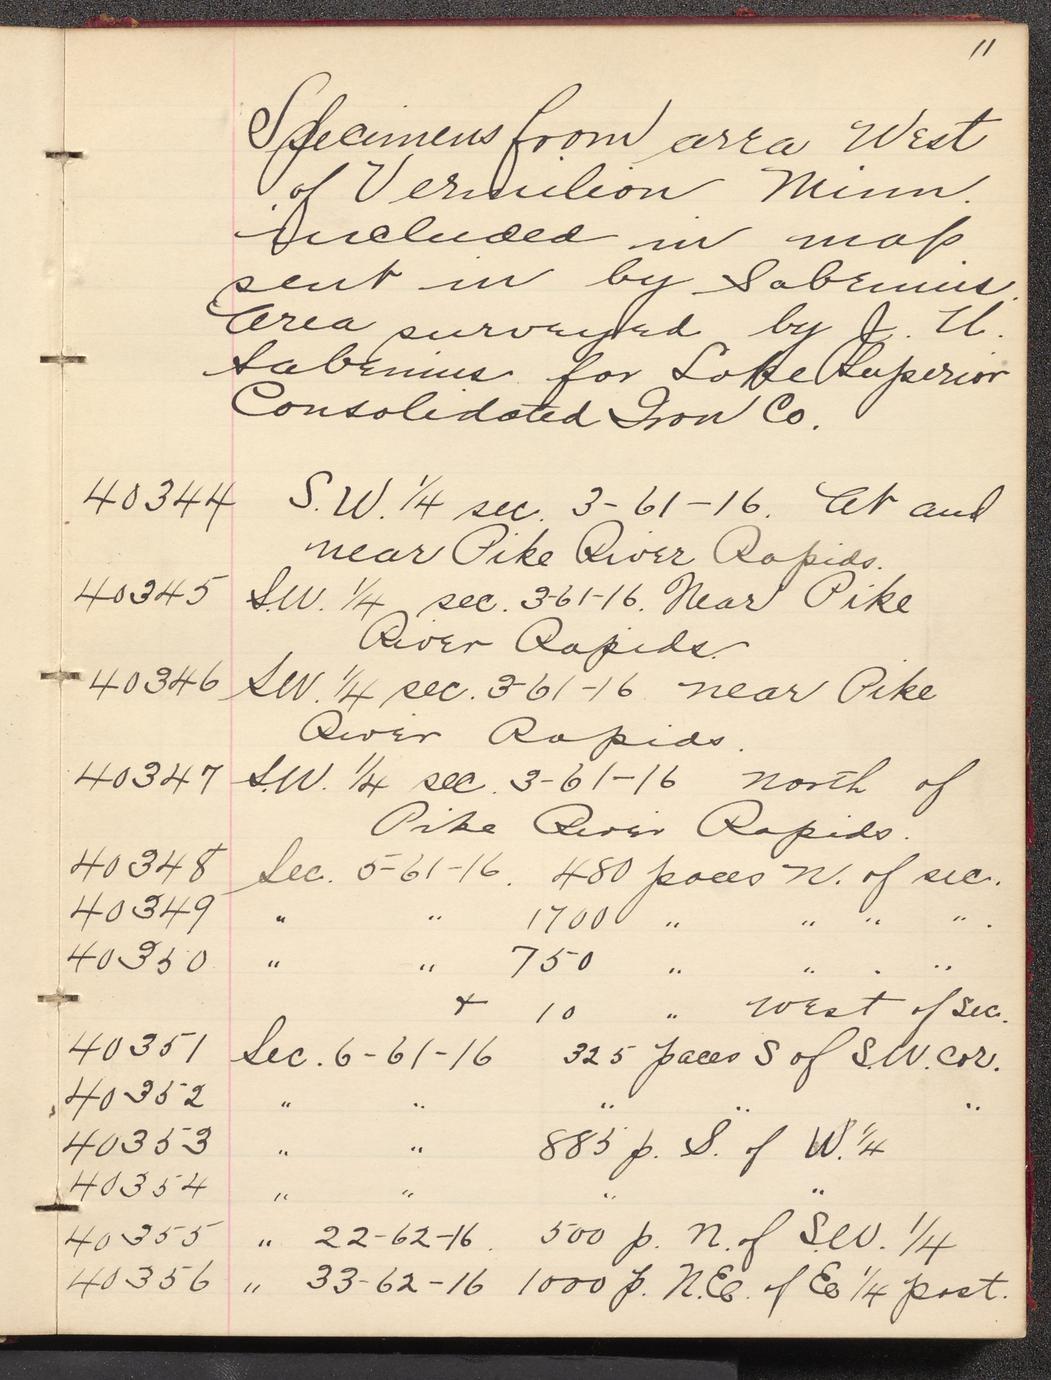 11
Specimens from area West
of Vermilion Minn.
included in map
sent in by Sabenius.
Area surveyed by J. U.
Sabenius for Lake Superior
Consolidated Iron Co.
40344 S.W. 1/4 sec. 3-61-16. At and
near Pike River Rapids.
40345 S.W. 1/4 sec. 3-61-16. Near Pike
River Rapids.
40346 S.W. 1/4 sec. 3-61-16 near Pike
River Rapids.
40347 S.W. 1/4 sec. 3-61-16 north of
Pike River Rapids.
40348 Sec. 5-61-16. 480 paces N. of sec.
40349 " " 1700 " " " ".
40350 " " 750 " " . "
+ 10 " west of sec.
40351 Sec. 6-61-16 325 paces S of S.W. cor.
40352 " " " " "
40353 " " 885 p. S. of W. 1/4
40354 " " " "
40355 " 22-62-16. 500 p. N. of S.W. 1/4
40356 " 33-62-16 1000 p. N.E. of E 1/4 post.